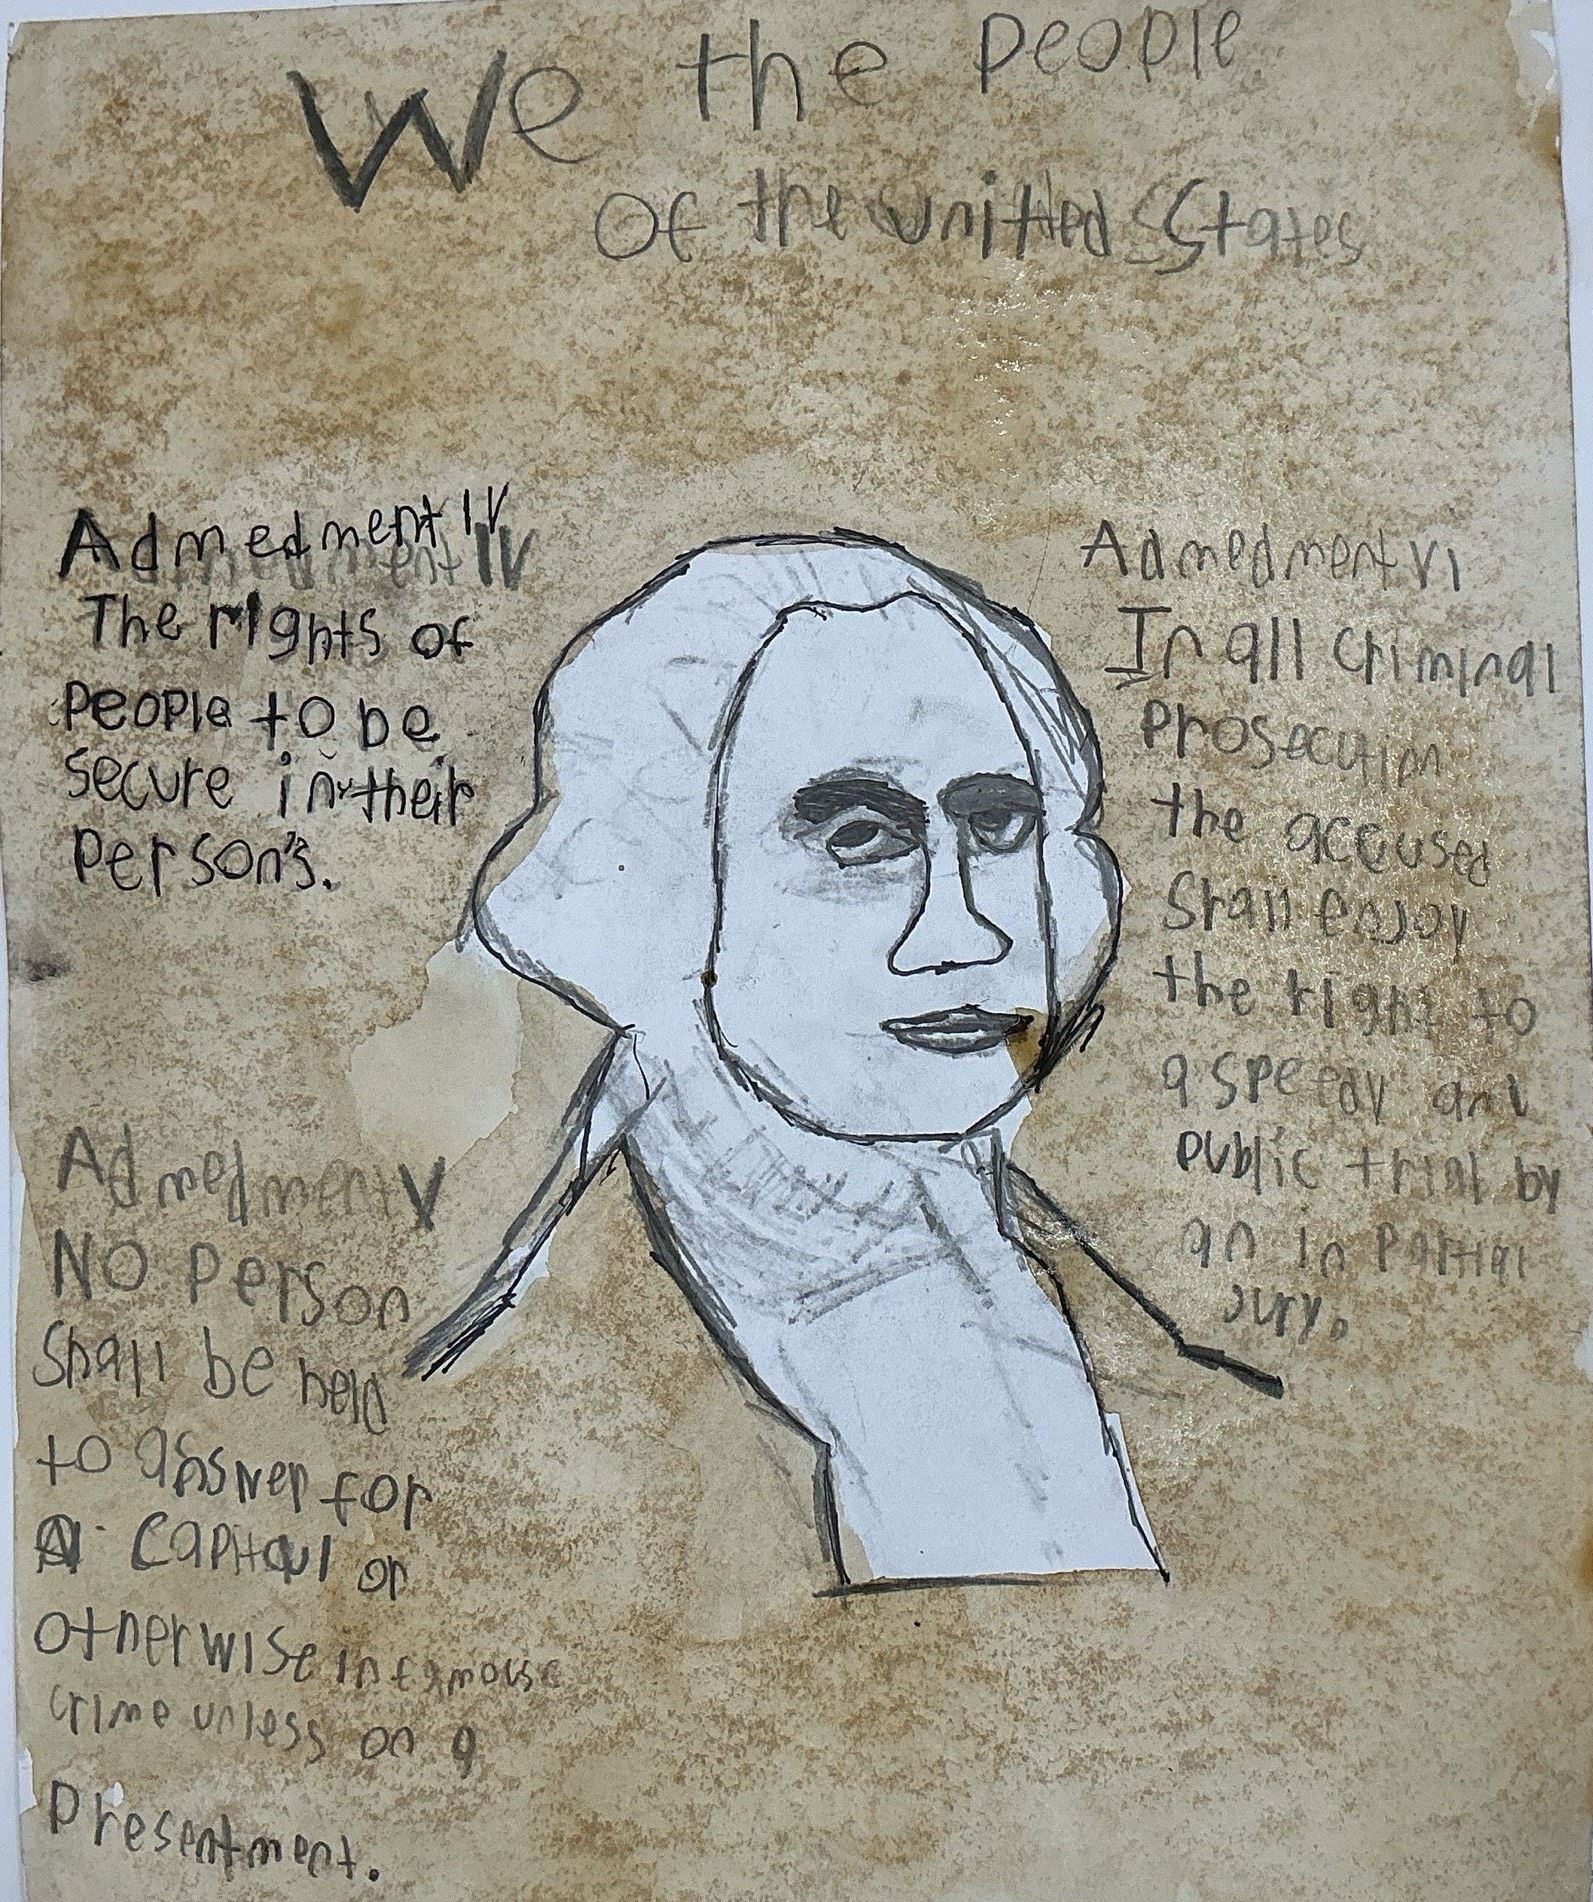 We the people
of the unitted States
Admedment IV
The rights of
people to be
secure in their
person's.
Admedment V
No person
Shall be held
to answer for
A capitaul or
otherwise infamouse
crime unless on a
Presentment.
Admedment VI
In all criminal
prosecution
the accused
Shall enjoy
the right to
a speedy and
public trial by
an in partial
jury.